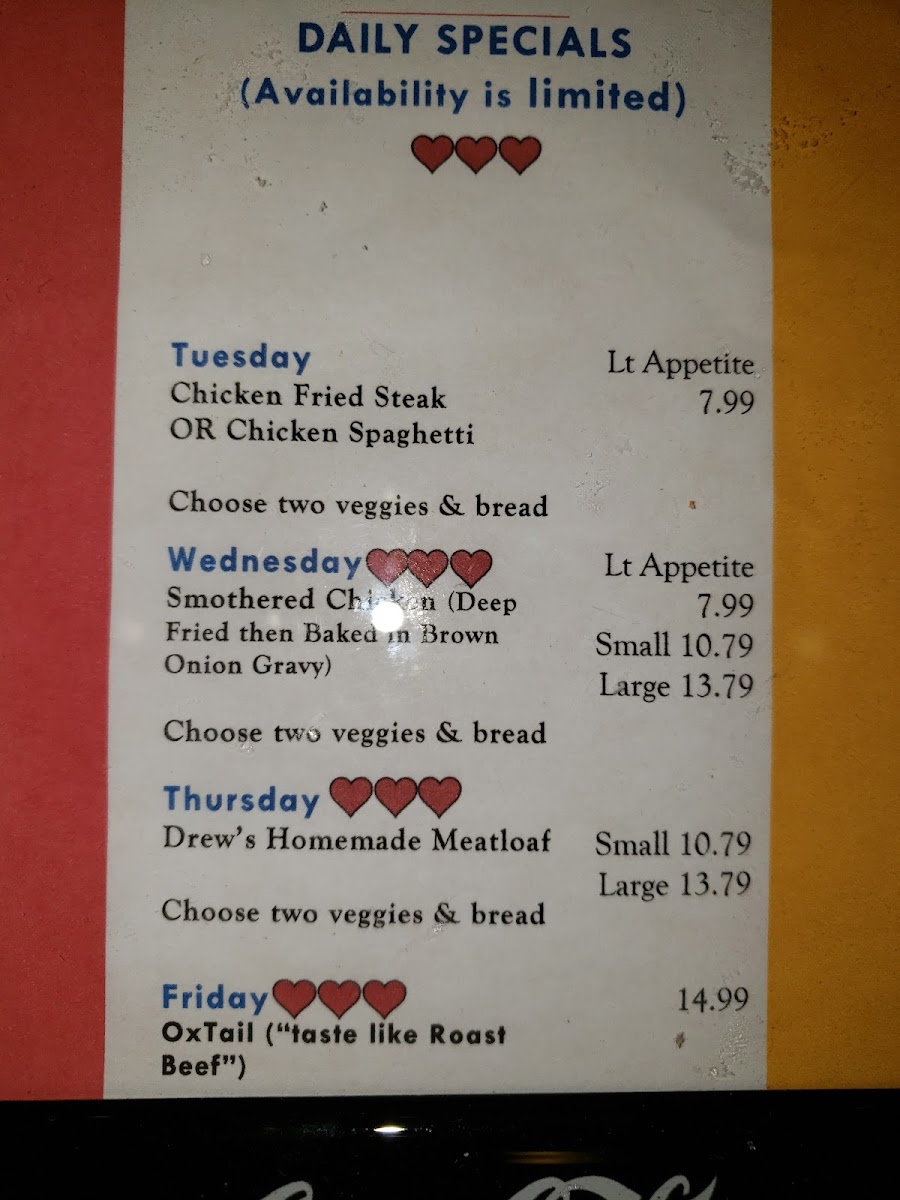 DAILY SPECIALS
(Availability is limited)
Tuesday
Lt Appetite
Chicken Fried Steak
7.99
OR Chicken Spaghetti
Choose two veggies & bread
Wednesday
Lt Appetite
Smothered Chicken (Deep
7.99
Fried then Baked in Brown
Small 10.79
Onion Gravy)
Large 13.79
Choose two veggies & bread
Thursday
Drew's Homemade Meatloaf
Small 10.79
Large 13.79
Choose two veggies & bread
Friday
14.99
OxTail ("taste like Roast
Beef")